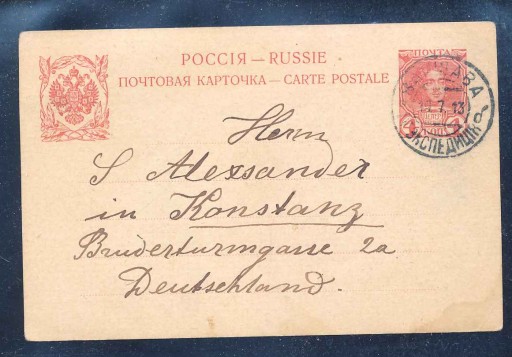 РОССІЯ — RUSSIE
ПОЧТОВАЯ КАРТОЧКА — CARTE POSTALE
ПОЧТА
ВАРШАВА
7. 13
ЭКСПЕДИЦІЯ
4
Herrn
S Alexsander
in Konstanz
Bruderturmgasse 2a
Deutschland.